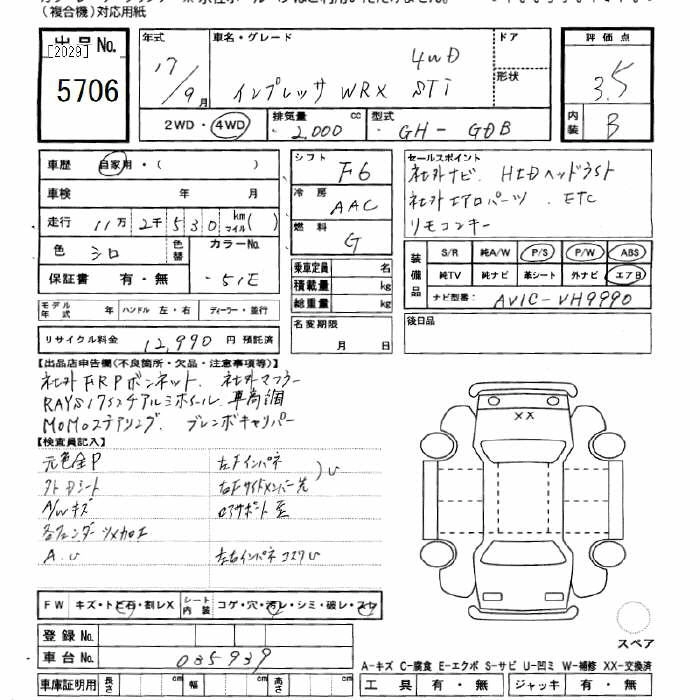 (複合機)対応用紙
出品No. [2029] 5706
年式 17/9月
車名・グレード インプレッサ WRX STi 4WD
ドア
形状
2WD・4WD
排気量 2,000 cc
型式 GH-GDB
評価点 3.5
内装 B
車歴 自家用・( )
車検 年 月
走行 11万2千530 km マイル( )
色 シロ 色替 カラーNo. 51E
保証書 有・無
モデル年式 年 ハンドル 左・右 ディーラー・並行
リサイクル料金 12,990 円 預託済
シフト F6
冷房 AAC
燃料 G
乗車定員 名
積載量 kg
総重量 kg
名変期限 月 日
セールスポイント
社外ナビ. HIDヘッドライト
社外エアロパーツ. ETC
リモコンキー
装備品 S/R 純A/W P/S P/W ABS
純TV 純ナビ 革シート 外ナビ エアB
ナビ型番: AVIC-VH9990
後日品
【出品店申告欄(不良箇所・欠品・注意事項等)】
社外FRPボンネット. 社外マフラー
RAYS17インチアルミホイール. 車高調
MOMOステアリング. ブレンボキャリパー
【検査員記入】
元色全P 左Fインパネ
右Fサイドメンバー先
A/Wキズ ロアサポート
各フェンダーツメカロエ
A.U 左右インパネ コスリ
XX
FW キズ・トビ石・割レX シート内装 コゲ・穴・汚レ・シミ・破レ・スレ
登録No.
車台No. 035939
車庫証明用 長さ cm 幅 cm 高さ cm
スペア
A-キズ C-腐食 E-エクボ S-サビ U-凹ミ W-補修 XX-交換済
工具 有・無 ジャッキ 有・無